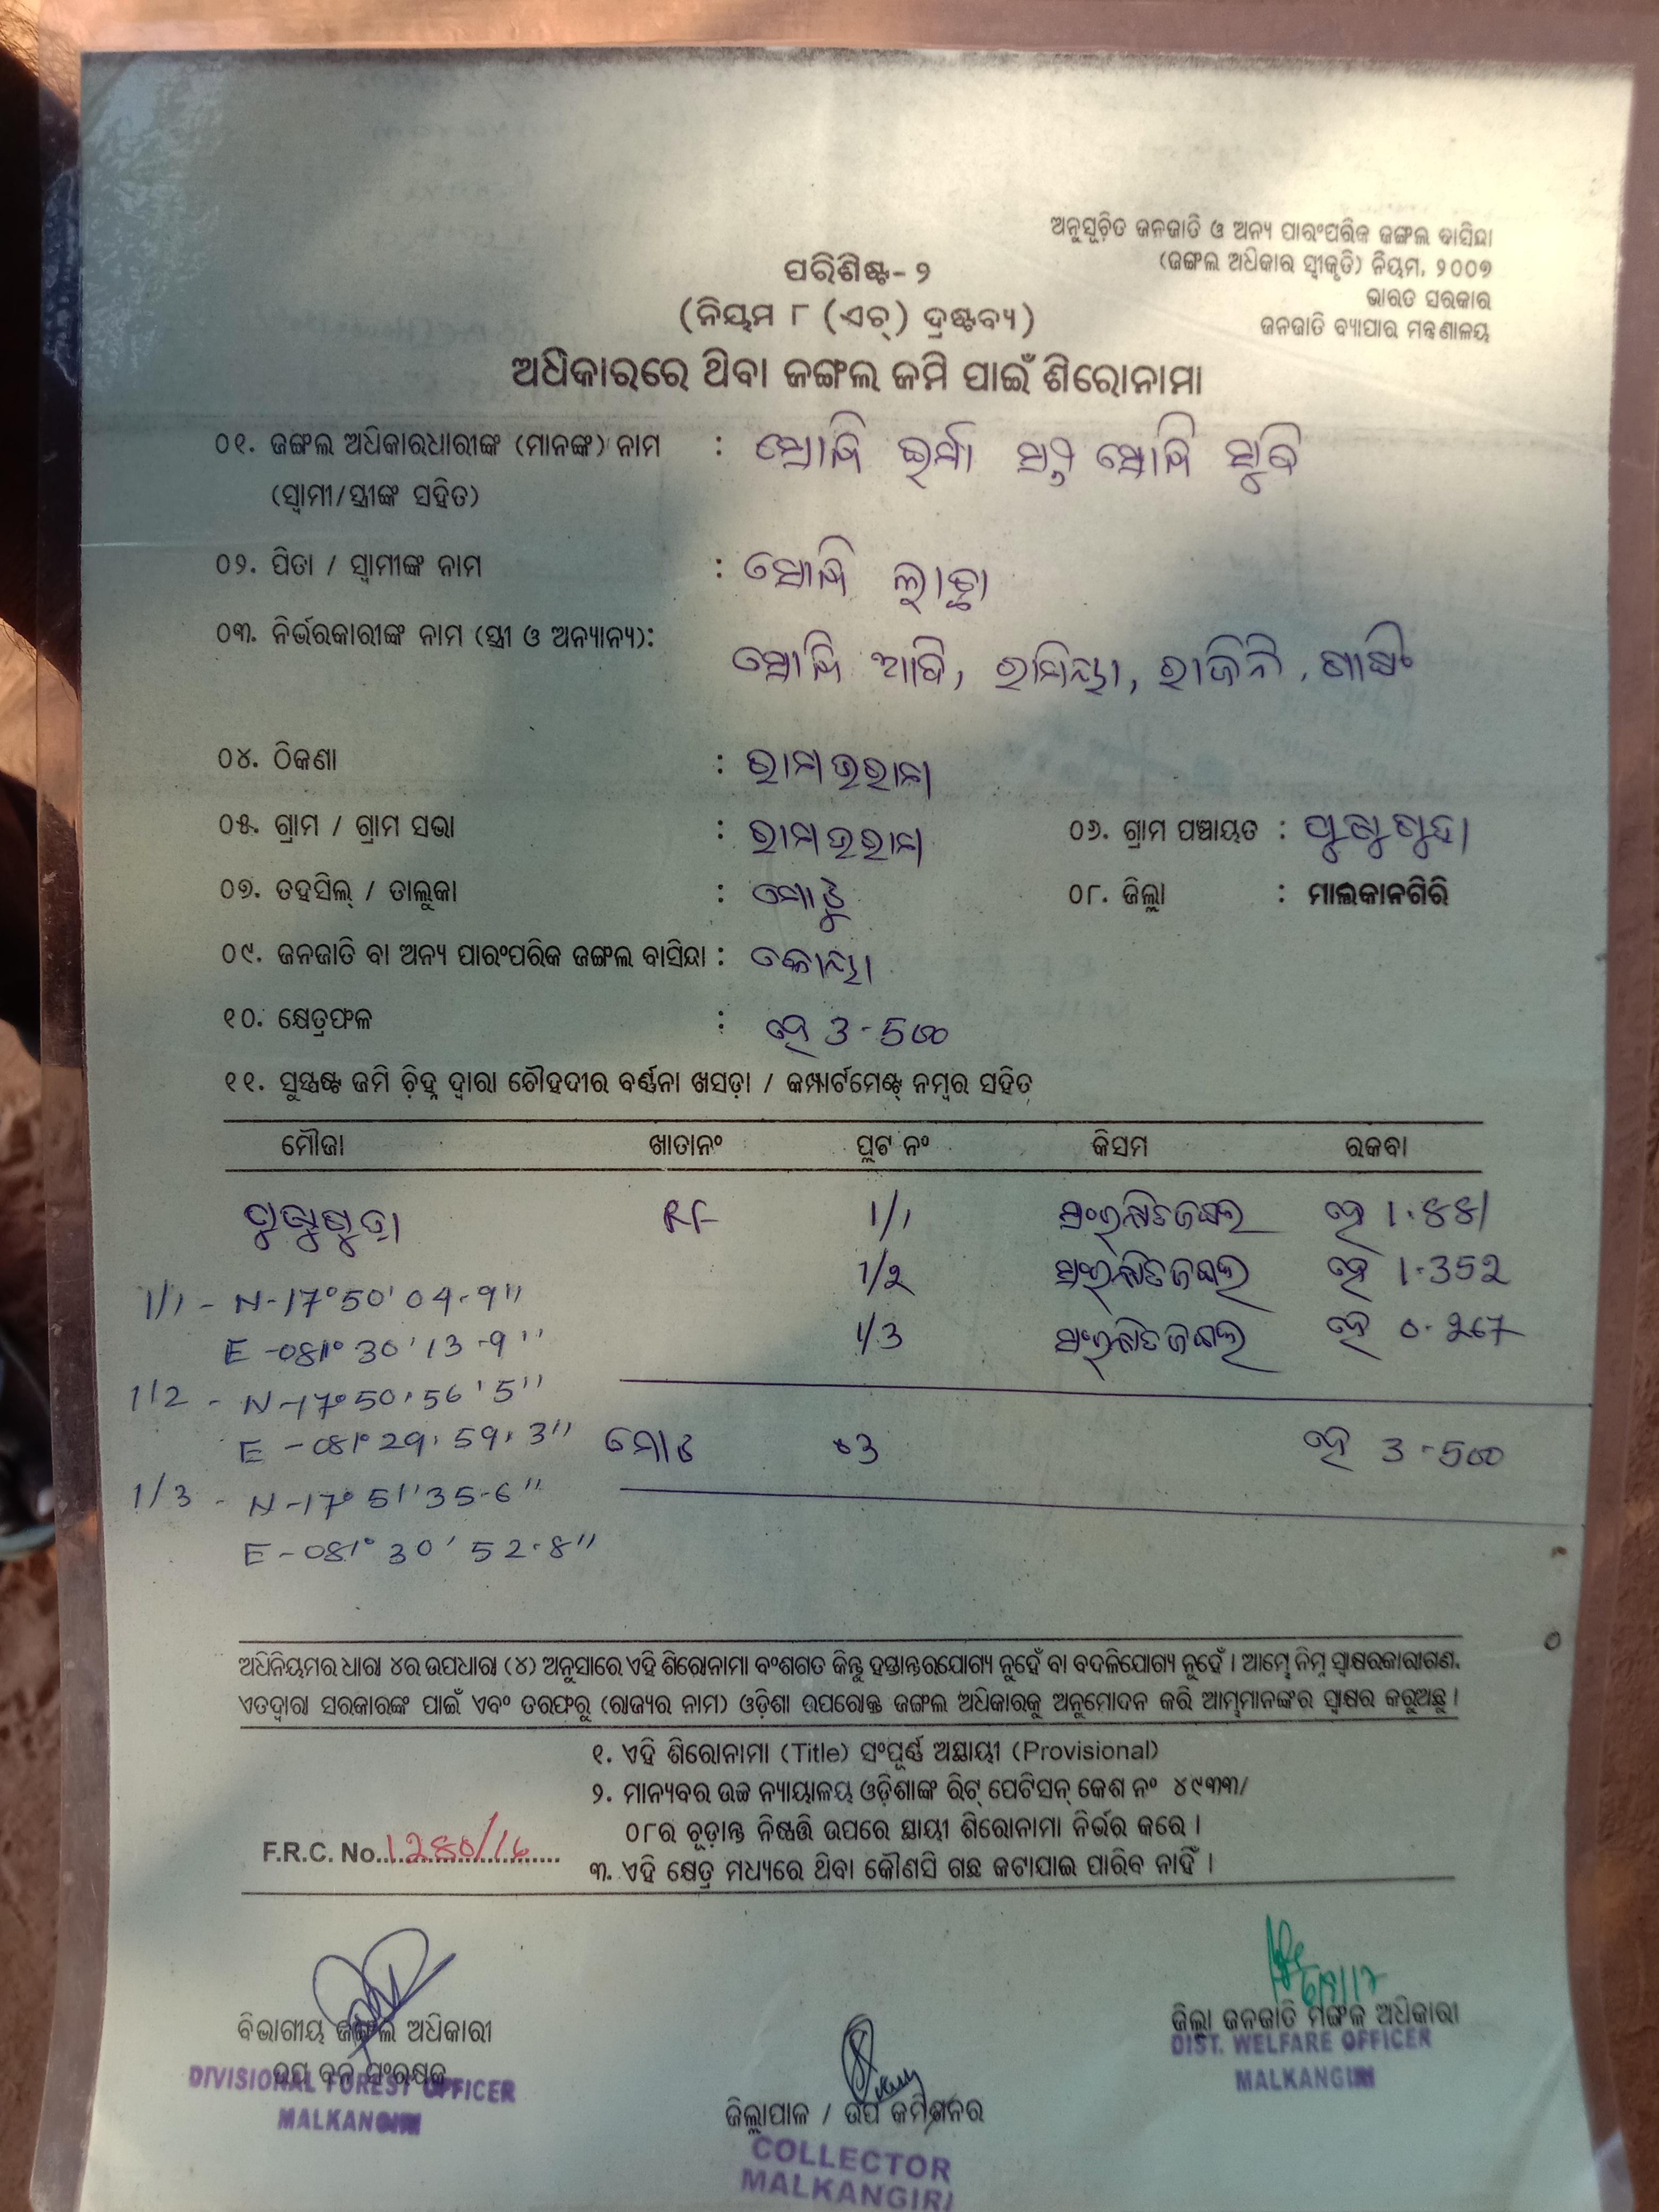 ଅନୁସୂଚିତ ଜନଜାତି ଓ ଅନ୍ୟ ପାରଂପରିକ ଜଙ୍ଗଲ ବାସିନ୍ଦା
(ଜଙ୍ଗଲ ଅଧିକାର ସ୍ୱୀକୃତି) ନିୟମ, ୨୦୦୭
ଭାରତ ସରକାର
ଜନଜାତି ବ୍ୟାପାର ମନ୍ତ୍ରଣାଳୟ
ପରିଶିଷ୍ଟ- ୨
(ନିୟମ ୮ (ଏଚ୍) ଦ୍ରଷ୍ଟବ୍ୟ)
ଅଧିକାରରେ ଥିବା ଜଙ୍ଗଲ ଜମି ପାଇଁ ଶିରୋନାମା
୦୧. ଜଙ୍ଗଲ ଅଧିକାରଧାରୀଙ୍କ (ମାନଙ୍କ) ନାମ :
(ସ୍ୱାମୀ/ସ୍ତ୍ରୀଙ୍କ ସହିତ)
୦୨. ପିତା / ସ୍ୱାମୀଙ୍କ ନାମ :
୦୩. ନିର୍ଭରକାରୀଙ୍କ ନାମ (ସ୍ତ୍ରୀ ଓ ଅନ୍ୟାନ୍ୟ):
୦୪. ଠିକଣା :
୦୫. ଗ୍ରାମ / ଗ୍ରାମ ସଭା : ୦୬. ଗ୍ରାମ ପଞ୍ଚାୟତ :
୦୭. ତହସିଲ୍ / ତାଲୁକା : ମୋଟୁ ୦୮. ଜିଲ୍ଲା : ମାଲକାନଗିରି
୦୯. ଜନଜାତି ବା ଅନ୍ୟ ପାରଂପରିକ ଜଙ୍ଗଲ ବାସିନ୍ଦା : କୋୟା
୧୦. କ୍ଷେତ୍ରଫଳ : ହେ 3-500
୧୧. ସୁସ୍ପଷ୍ଟ ଜମି ଚିହ୍ନ ଦ୍ୱାରା ଚୌହଦୀର ବର୍ଣ୍ଣନା ଖସଡ଼ା / କମ୍ପାର୍ଟମେଣ୍ଟ୍ ନମ୍ବର ସହିତ
ମୌଜା ଖାତାନଂ ପ୍ଲଟ ନଂ କିସମ ରକବା
RF 1/1 ସଂରକ୍ଷିତ ଜଙ୍ଗଲ ହେ
1/2 ସଂରକ୍ଷିତ ଜଙ୍ଗଲ ହେ 1.352
1/3 ସଂରକ୍ଷିତ ଜଙ୍ଗଲ ହେ 0.267
1/1 - N-17°50'04.9"
E-081°30'13.9"
1/2 - N-17°50'56'5"
E-081°29'59.3"
1/3 - N-17°51'35.6"
E-081°30'52.8"
ମୋଟ 3 ହେ 3-500
ଅଧିନିୟମର ଧାରା ୪ର ଉପଧାରା (୪) ଅନୁସାରେ ଏହି ଶିରୋନାମା ବଂଶଗତ କିନ୍ତୁ ହସ୍ତାନ୍ତରଯୋଗ୍ୟ ନୁହେଁ ବା ବଦଳିଯୋଗ୍ୟ ନୁହେଁ । ଆମ୍ଭେ ନିମ୍ନ ସ୍ୱାକ୍ଷରକାରୀଗଣ,
ଏତଦ୍ୱାରା ସରକାରଙ୍କ ପାଇଁ ଏବଂ ତରଫରୁ (ରାଜ୍ୟର ନାମ) ଓଡ଼ିଶା ଉପରୋକ୍ତ ଜଙ୍ଗଲ ଅଧିକାରକୁ ଅନୁମୋଦନ କରି ଆମ୍ଭମାନଙ୍କର ସ୍ୱାକ୍ଷର କରୁଅଛୁ ।
୧. ଏହି ଶିରୋନାମା (Title) ସଂପୂର୍ଣ୍ଣ ଅସ୍ଥାୟୀ (Provisional)
୨. ମାନ୍ୟବର ଉଚ୍ଚ ନ୍ୟାୟାଳୟ ଓଡ଼ିଶାଙ୍କ ରିଟ୍ ପେଟିସନ୍ କେଶ ନଂ ୪୯୩୩/
୦୮ର ଚୂଡ଼ାନ୍ତ ନିଷ୍ପତ୍ତି ଉପରେ ସ୍ଥାୟୀ ଶିରୋନାମା ନିର୍ଭର କରେ ।
F.R.C. No.1280/16
୩. ଏହି କ୍ଷେତ୍ର ମଧ୍ୟରେ ଥିବା କୌଣସି ଗଛ କଟାଯାଇ ପାରିବ ନାହିଁ ।
ବିଭାଗୀୟ ଜଙ୍ଗଲ ଅଧିକାରୀ
ଉପ ବନ ସଂରକ୍ଷକ
DIVISIONAL FOREST OFFICER
MALKANGIRI
ଜିଲ୍ଲାପାଳ / ଉପ କମିଶନର
COLLECTOR
MALKANGIRI
ଜିଲ୍ଲା ଜନଜାତି ମଙ୍ଗଳ ଅଧିକାରୀ
DIST. WELFARE OFFICER
MALKANGIRI